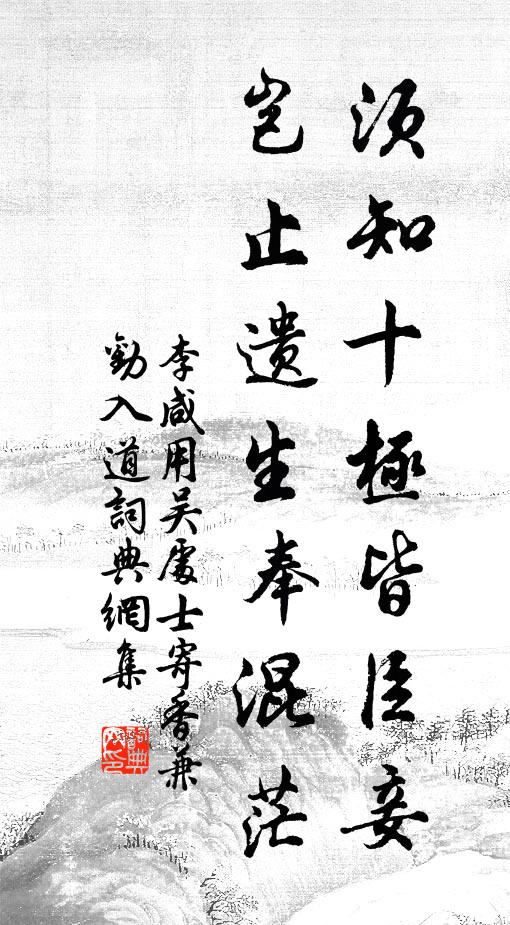 須知十極皆臣妾
豈止遺生奉混茫
李咸用吴處士寄香兼
勸入道詞典網集